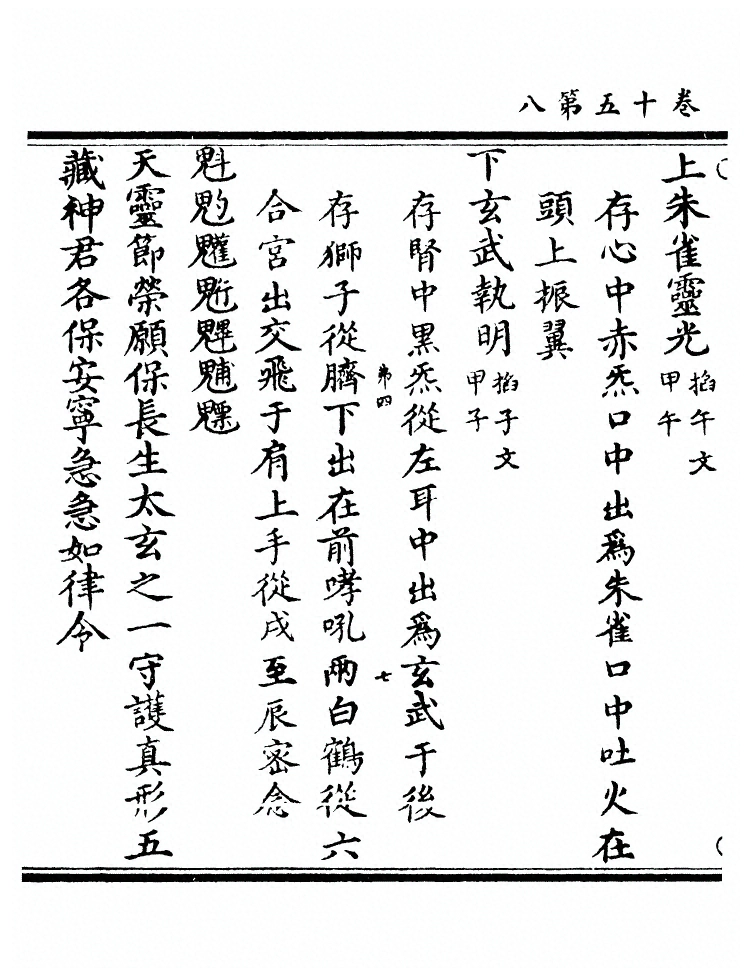 卷十五第八
上朱雀靈光掐午文甲午
存心中赤炁口中出為朱雀口中吐火在
頭上振翼
下玄武執明掐子文甲子
存腎中黑炁從左耳中出為玄武于後
弟四 七
存獅子從臍下出在前哮吼兩白鶴從六
合宮出交飛于肩上手從戌至辰密念
魁𩲃𩵄䰢魓𩳐魒
天靈節榮願保長生太玄之一守護真形五
藏神君各保安寧急急如律令